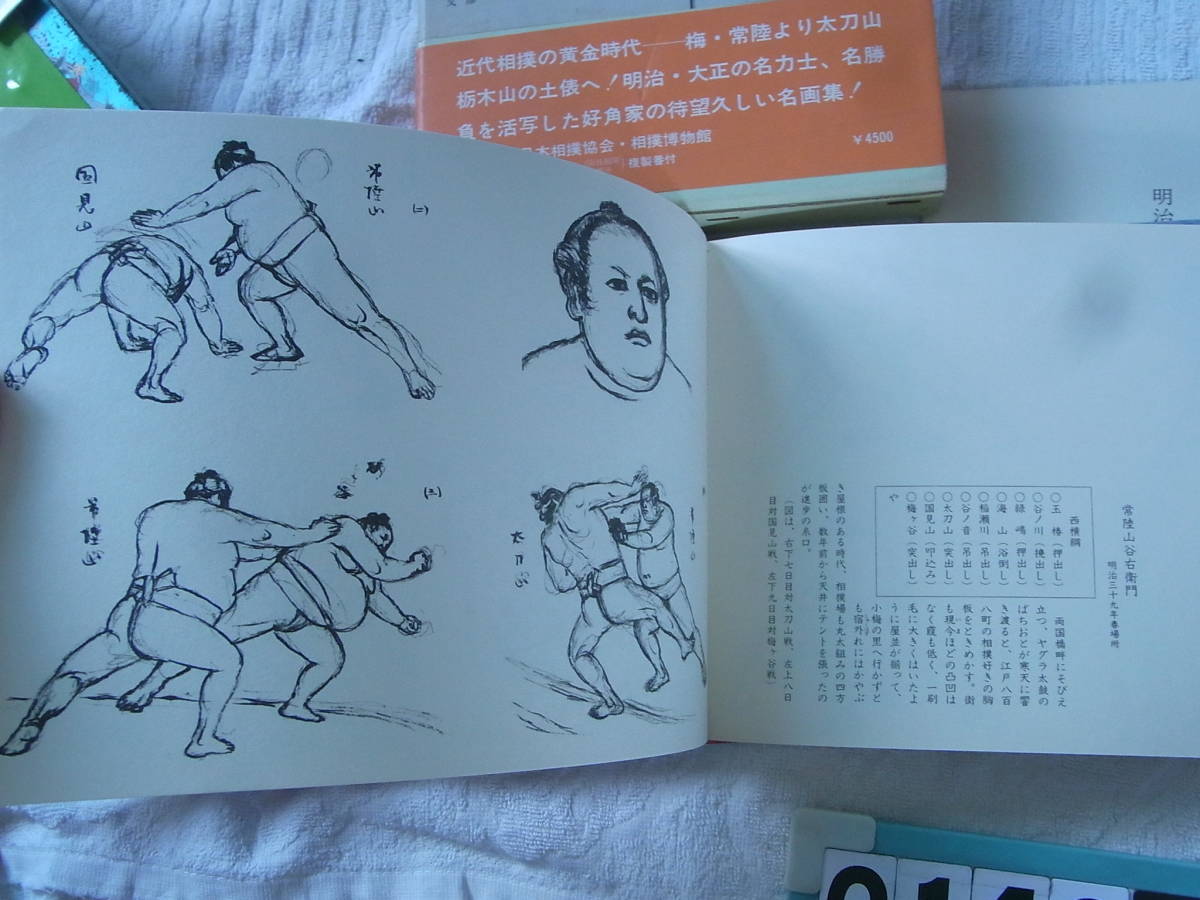 文部
近代相撲の黄金時代——梅・常陸より太刀山
栃木山の土俵へ!明治・大正の名力士、名勝
負を活写した好角家の待望久しい名画集!
日本相撲協会・相撲博物館
複製番付
¥4500
明治
国見山
常陸山
(二)
常陸山
(三)
太刀山
常陸山谷右衛門
明治三十九年春場所
西横綱
○玉 椿(押出し)
○谷ノ川(撓出し)
○緑 嶋(押出し)
○海 山(浴倒し)
○稲瀬川(吊出し)
○谷ノ音(吊出し)
○太刀山(突出し)
○国見山(叩込み)
○梅ヶ谷(突出し)
両国橋畔にそびえ
立つ、ヤグラ太鼓の
ばちおとが寒天に響
き渡ると、江戸八百
八町の相撲好きの胸
板をときめかす。街
も現今ほどの凸凹は
なく霞も低く、一刷
毛に大きくはいたよ
うに屋並が揃って、
小梅の里へ行かずと
も宿外れにはかやぶ
き屋根のある時代、相撲場も丸太組みの四方
板囲い、数年前から天井にテントを張ったの
が進歩の糸口。
(図は、右下七日目対太刀山戦、左上八日
目対国見山戦、左下九日目対梅ヶ谷戦)